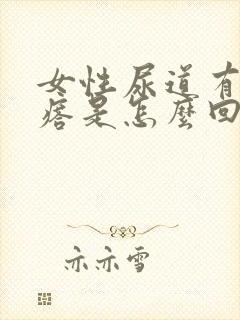 女性尿道有
痞是怎麼回
亦亦雪